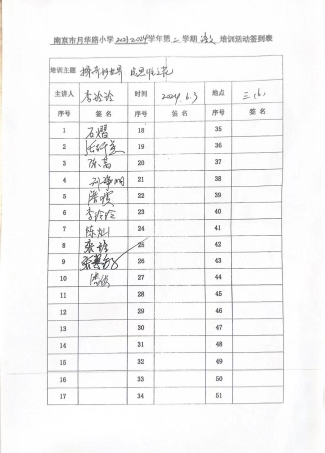 南京市月华路小学2023-2024学年第二学期语文培训活动签到表
培训主题
主讲人 李玲玲 时间 2024.6.3 地点 三(6)
序号 签名 序号 签名 序号 签名
1 石熠 18 35
2 19 36
3 陈嵩 20 37
4 21 38
5 22 39
6 李玲玲 23 40
7 陈灿 24 41
8 25 42
9 26 43
10 27 44
11 28 45
12 29 46
13 30 47
14 31 48
15 32 49
16 33 50
17 34 51